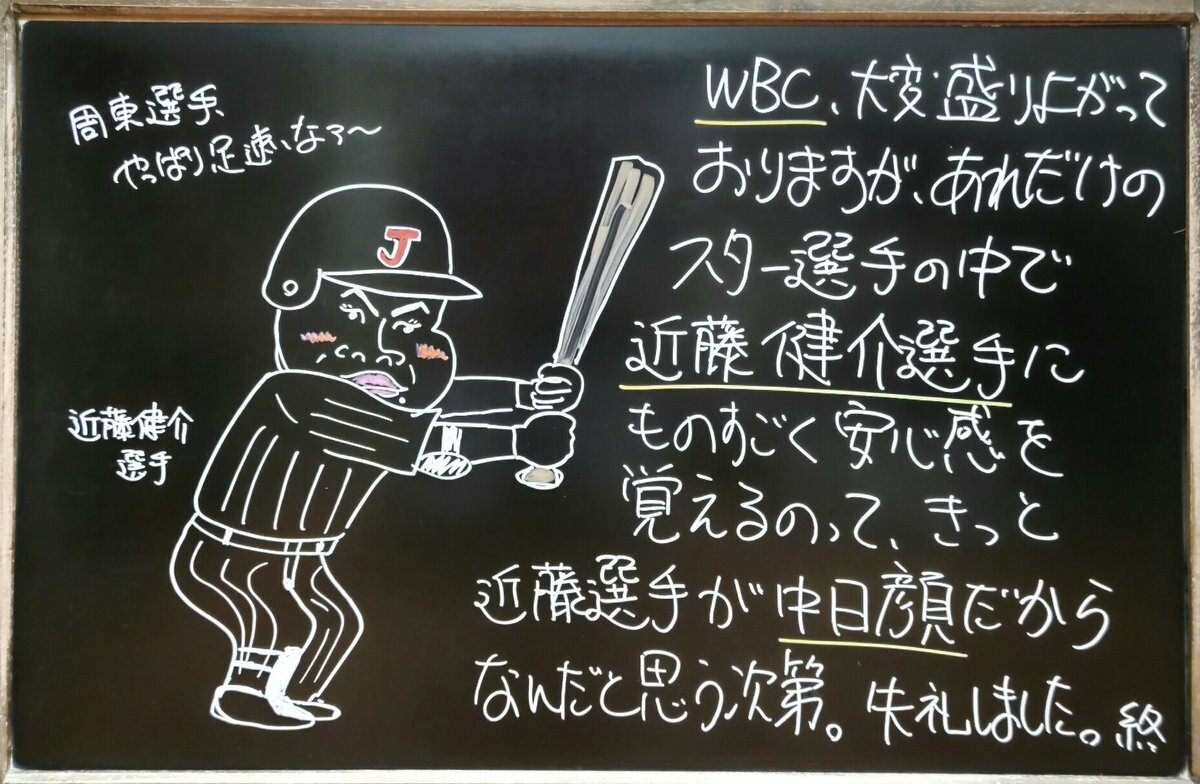 周東選手
やっぱり足速いなァ〜
J
近藤健介
選手
WBC、大変盛りよがって
おりますが、あれだけの
スター選手の中で
近藤健介選手に
ものすごく安心感を
覚えるのって、きっと
近藤選手が中日顔だから
なんだと思う次第。失礼しました。終